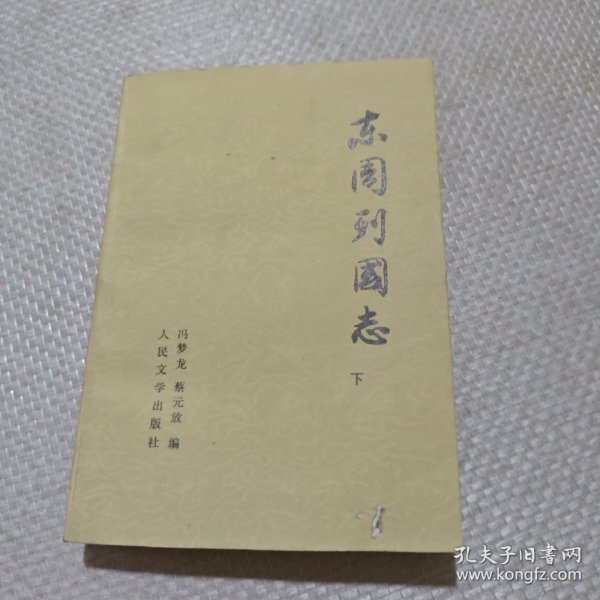 东周列國志
下
冯梦龙 蔡元放 编
人民文学出版社
孔夫子旧书网
www.kongfz.com